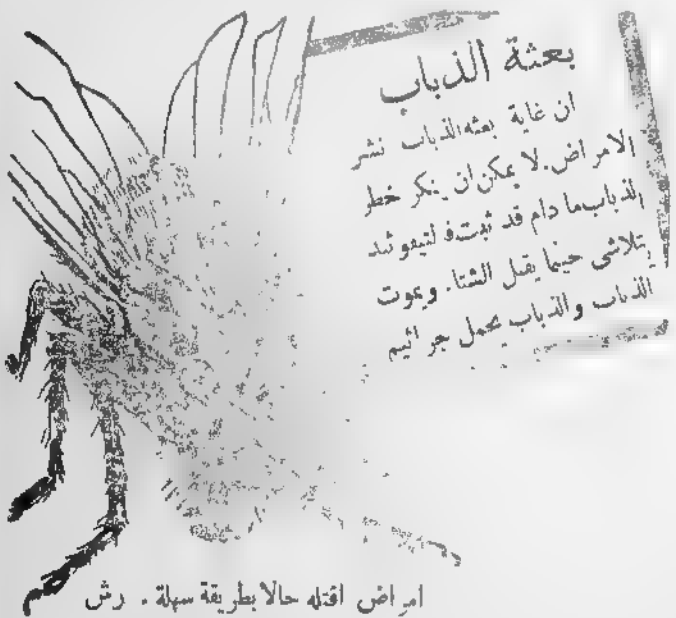 بعثة الذباب
ان غاية بعثه الذباب نشر
الامراض. لا يمكن ان ينكر خطر
الذباب ما دام قد ثبت فـ لتيفوئيد
يتلاشى حينما يقبل الشتاء. ويموت
الذباب والذباب يحمل جراثيم
امراض اقتله حالا بطريقة سهلة. رش